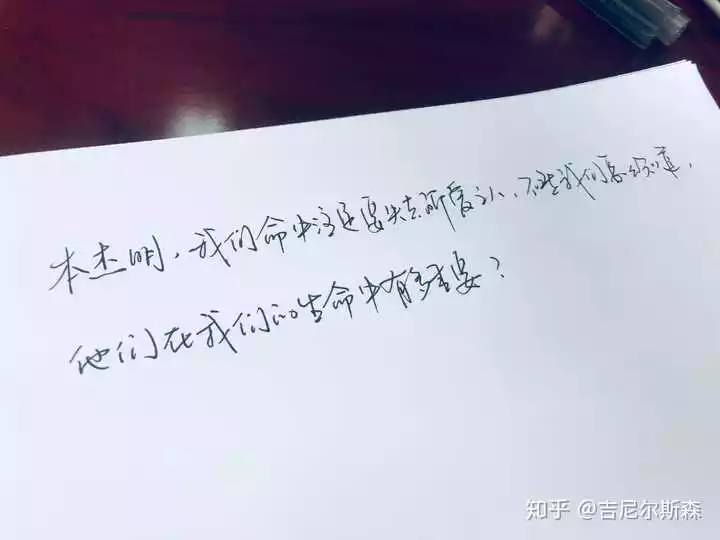 本杰明,我们命中注定要失去所爱之人,不然我们怎么知道,
他们在我们的生命中有多重要?
知乎 @吉尼尔斯森